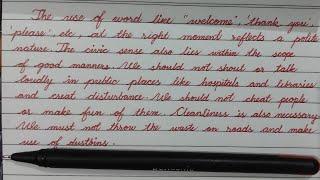 The use of word like "welcome", 'thank you',
'please', etc, at the right moment reflects a polite
nature. The civic sense also lies within the scope
of good manners. We should not shout or talk
loudly in public places like hospitals and libraries
and creat disturbance. We should not cheat people
or make fun of them. Cleanliness is also necessary.
We must not throw the waste on roads and make
use of dustbins.